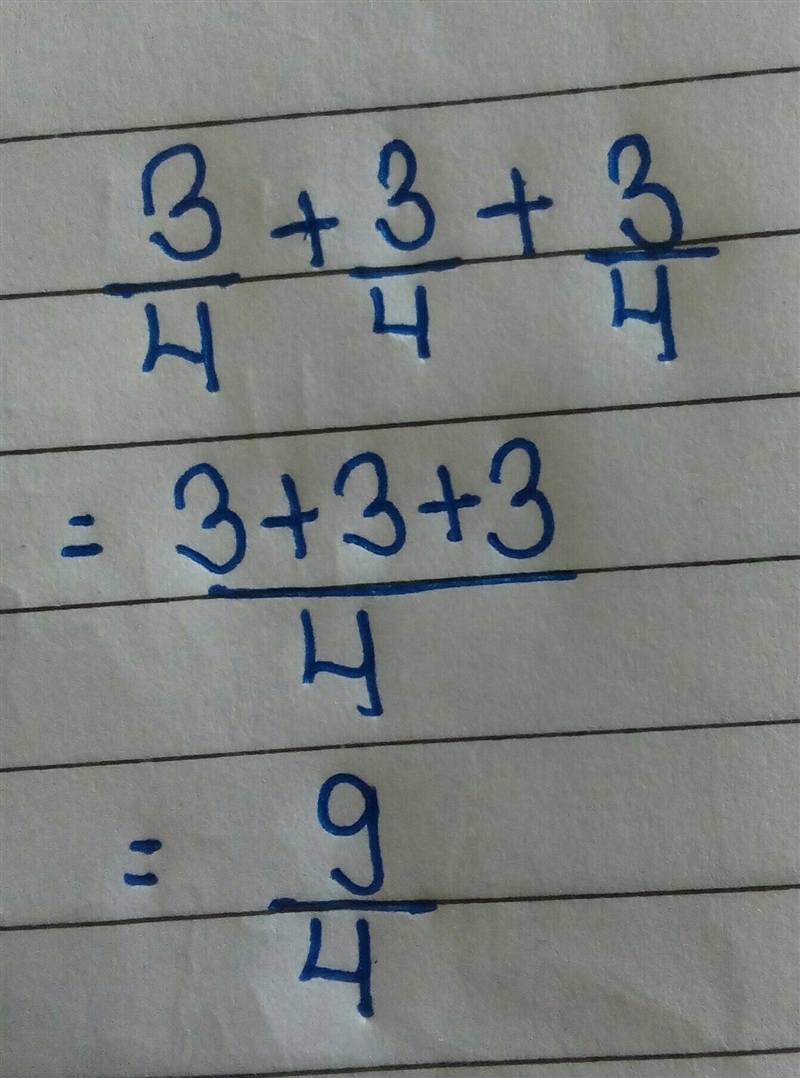 3/4 + 3/4 + 3/4
= 3+3+3/4
= 9/4